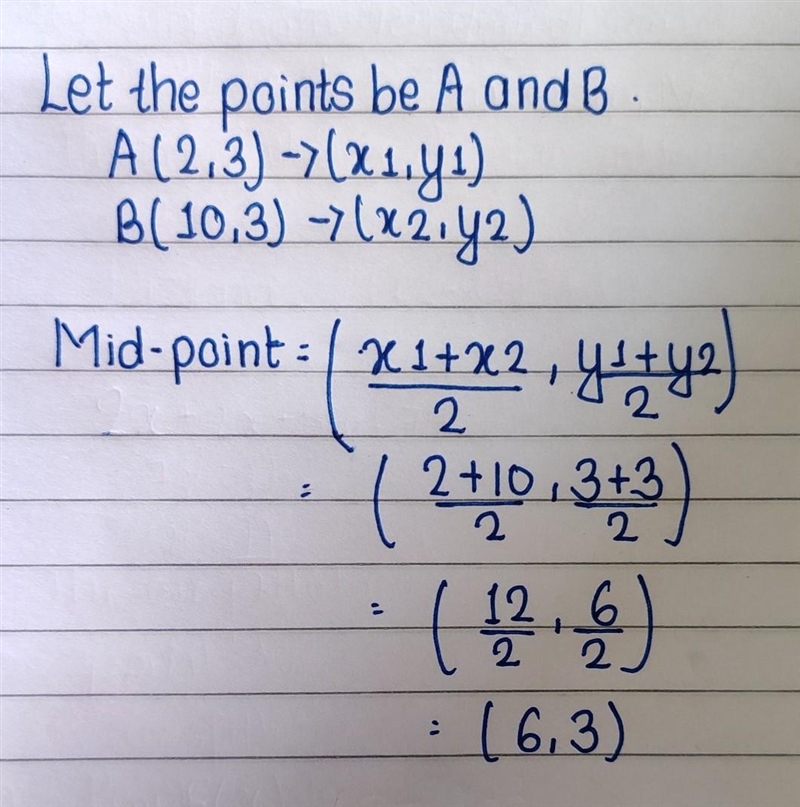 Let the points be A and B.
A(2,3) → (x1,y1)
B(10,3) → (x2,y2)
Mid-point = (x1+x2/2, y1+y2/2)
= (2+10/2, 3+3/2)
= (12/2, 6/2)
= (6,3)